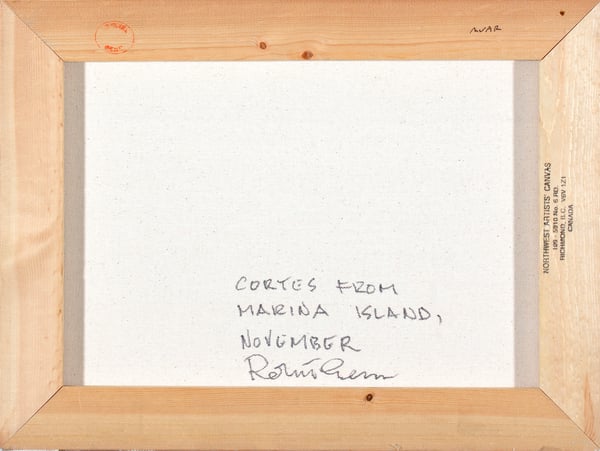 CORTES FROM
MARINA ISLAND,
NOVEMBER
Robert Genn
NORTHWEST ARTISTS' CANVAS
109 - 5910 No. 6 RD.
RICHMOND, B.C. V6V 1Z1
CANADA